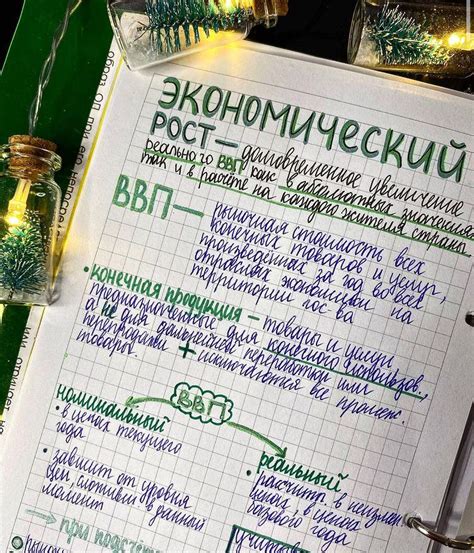 ЭКОНОМИЧЕСКИЙ
РОСТ — долговременное увеличение
реального ВВП как в абсолютных значениях,
так и в расчёте на каждого жителя страны
ВВП — рыночная стоимость всех
конечных товаров и услуг,
произведённых за год во всех
отраслях экономики на
территории гос-ва
• КОНЕЧНАЯ ПРОДУКЦИЯ — товары и услуги
предназначенные для конечного использов,
а не для дальнейшей переработки или
перепродажи + исключаются все промеж.
товары.
ВВП
номинальный
• в ценах текущего
года
• зависит от уровня
цен, сложивш. в данный
момент
реальный
• рассчит. в неизмен
ценах, в ценах
базового года
→ при подсчёте
• рыночн
учитыв